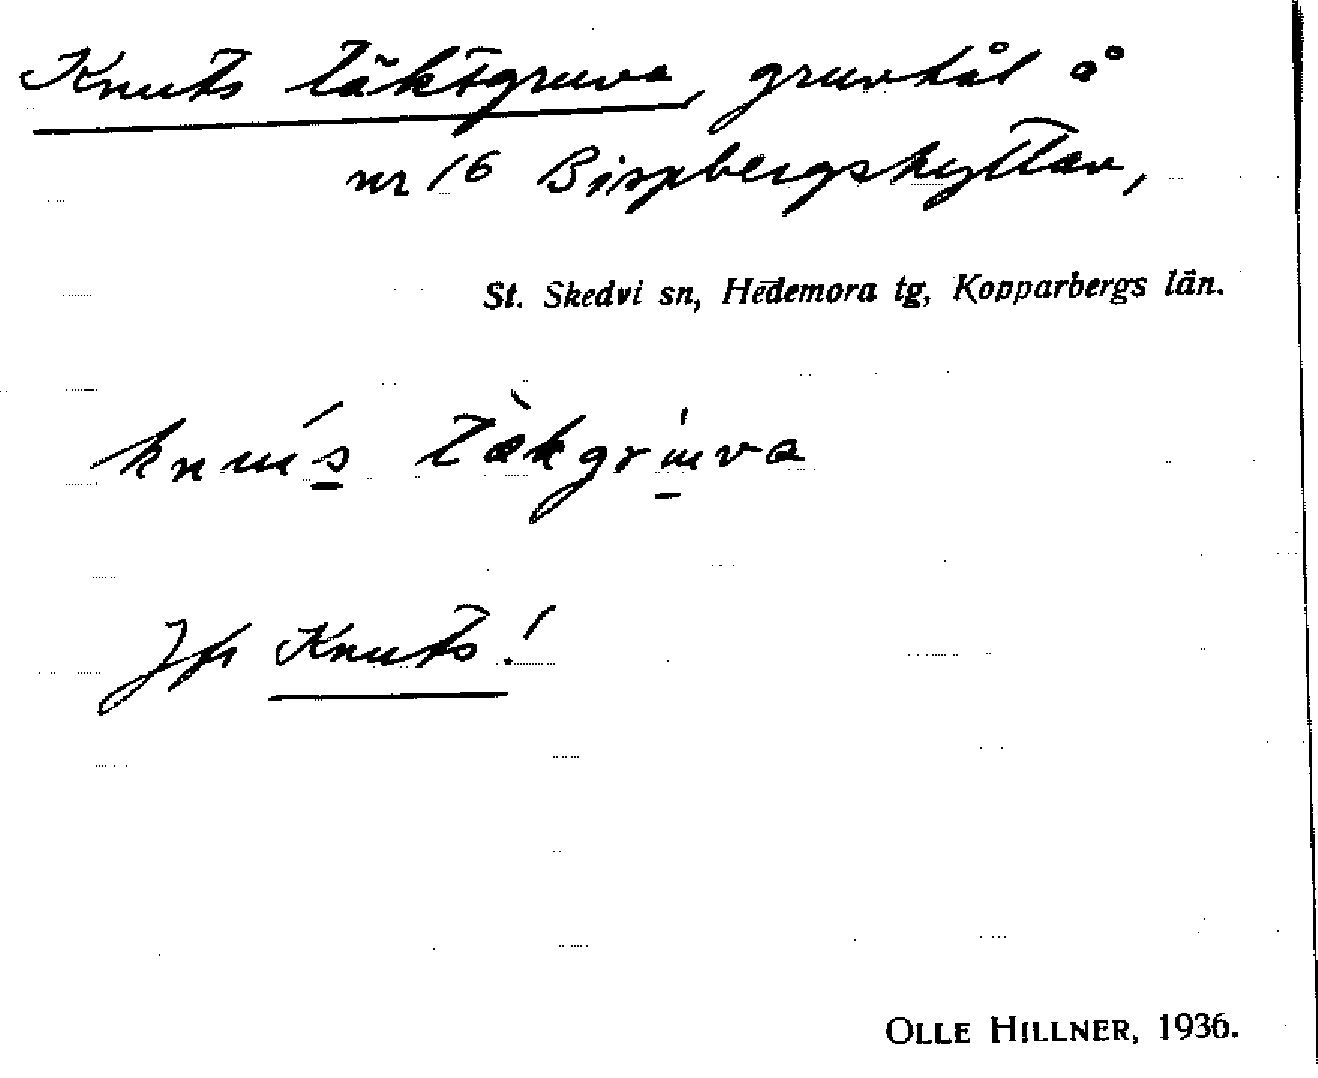 Knuts täktgruva, gruvhål å
nr 16 Bispbergshyttan,
St. Skedvi sn, Hedemora tg, Kopparbergs län.
knuś tæ̀kgrùva
Jfr Knuts!
OLLE HILLNER, 1936.